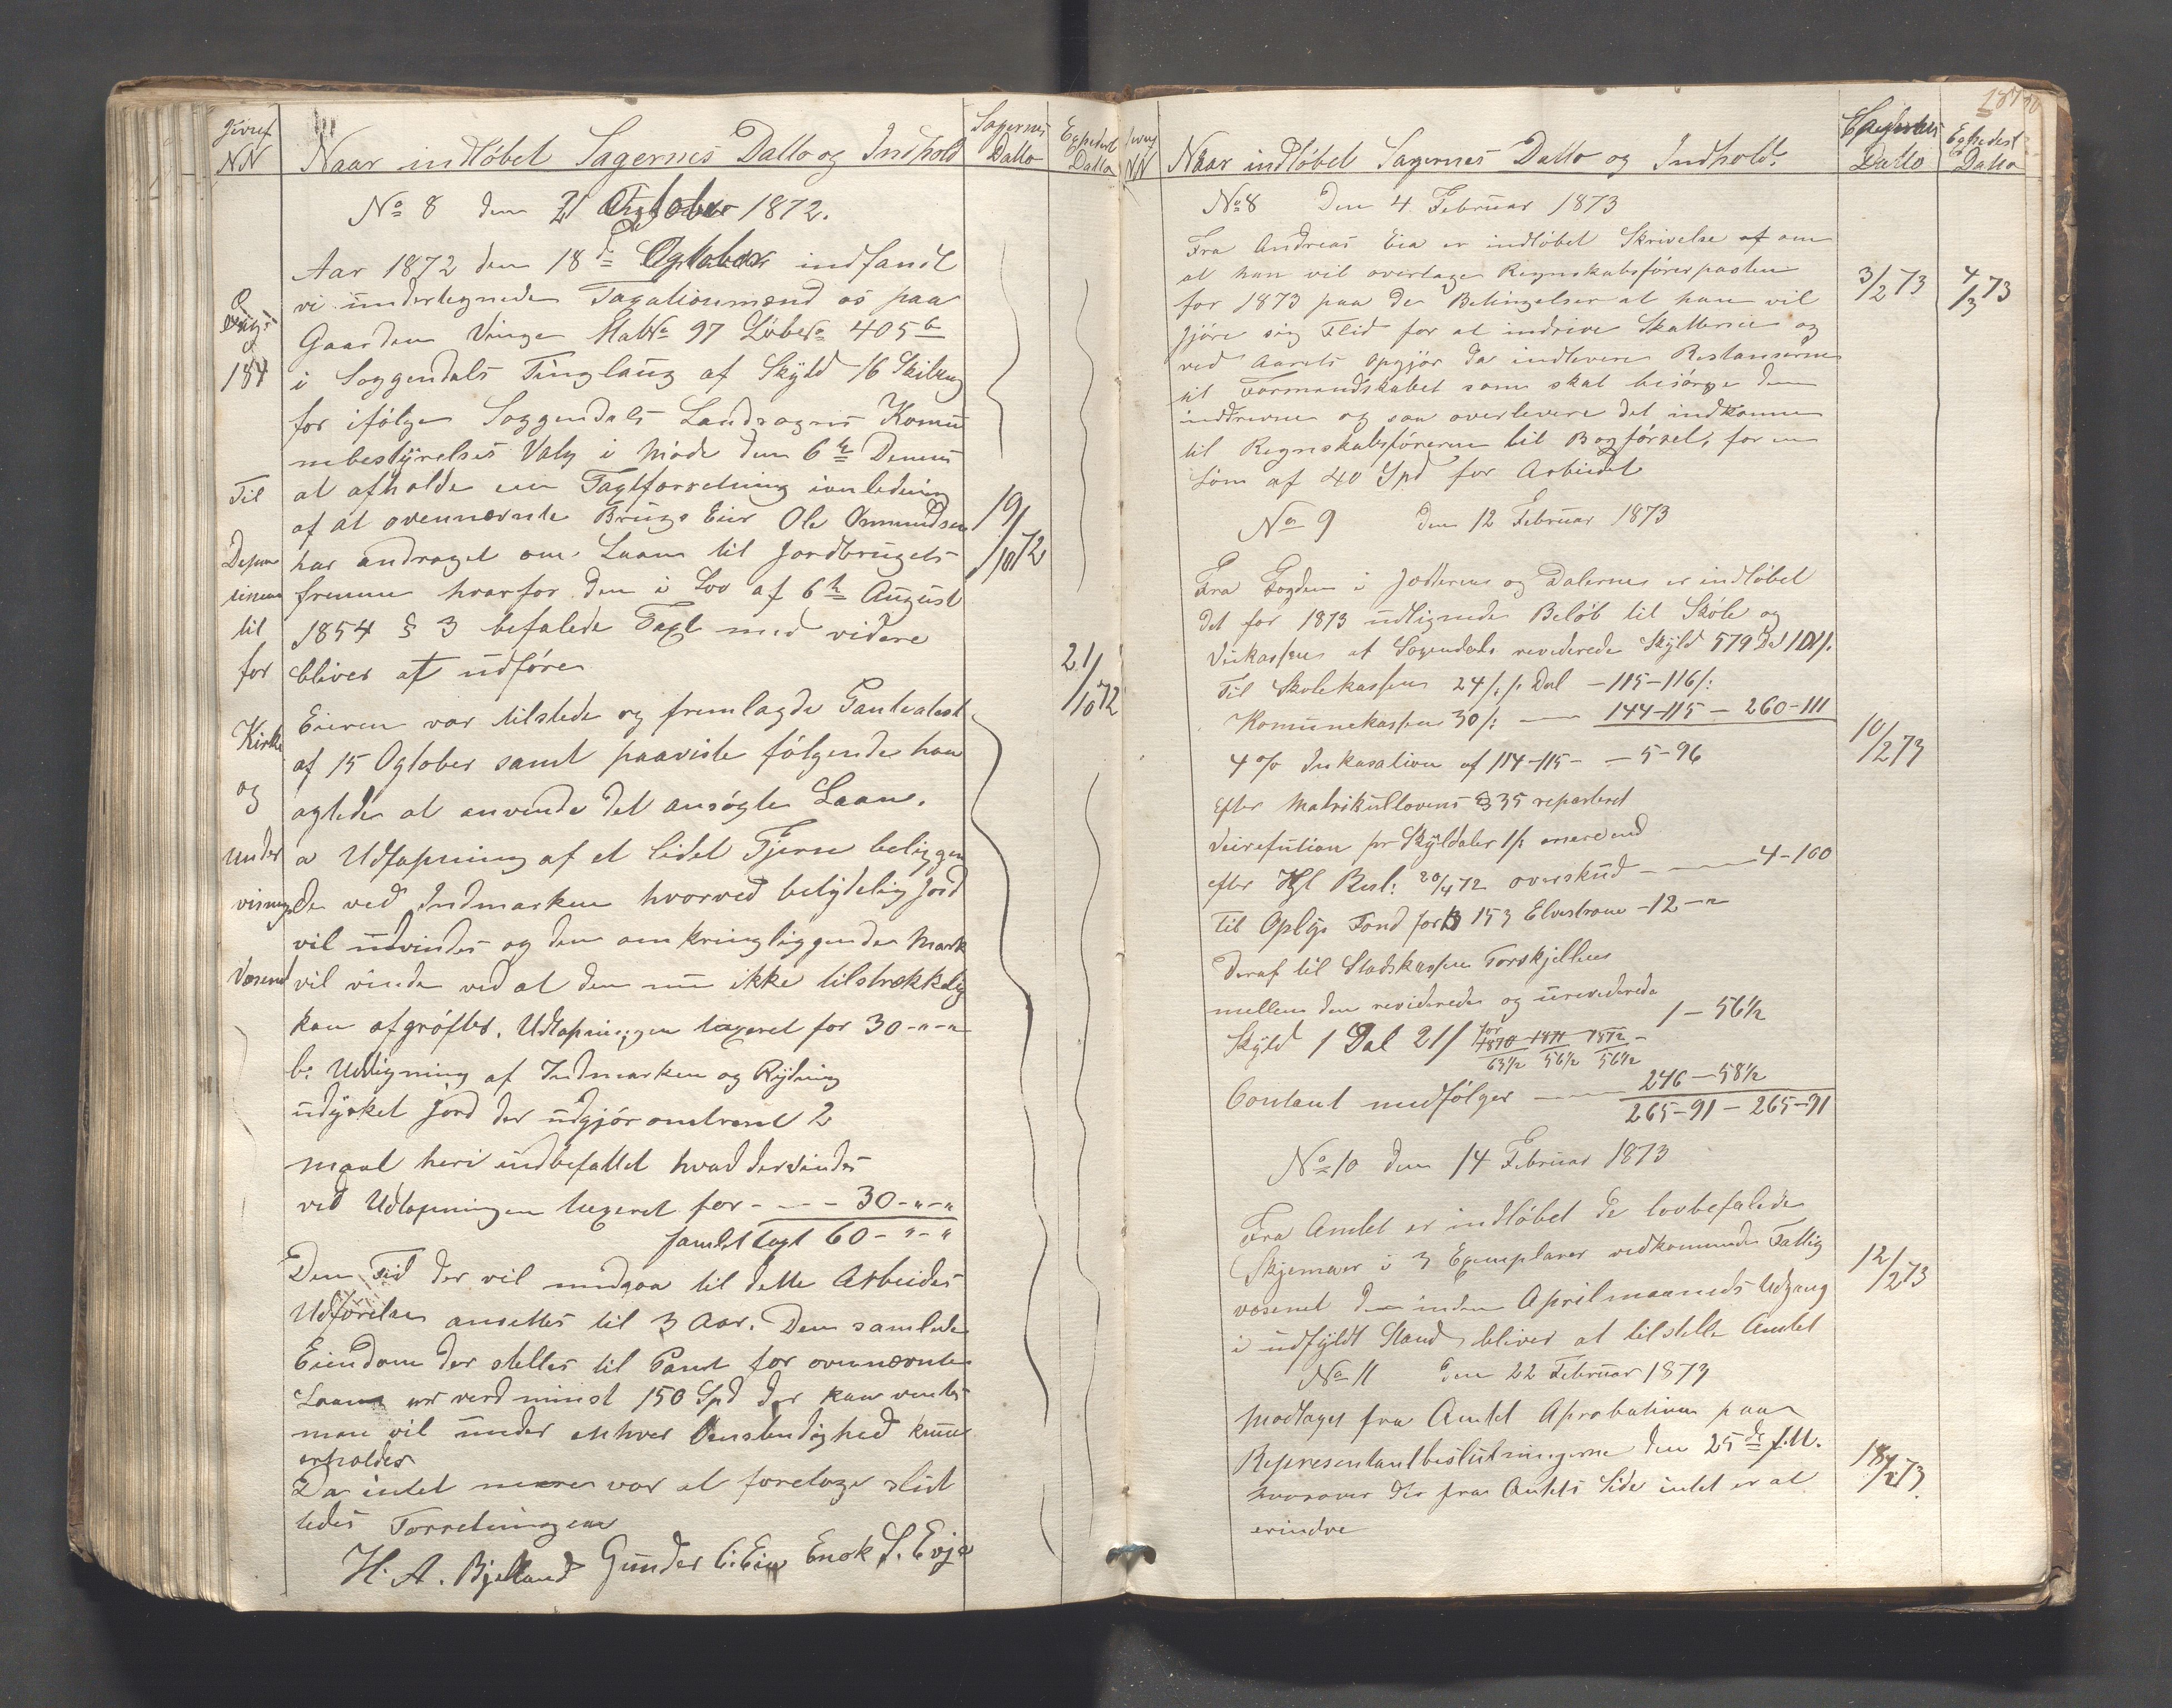 Jour
NN
Naar indløbet Sagernes Datto og Indhold
Sagernes
Datto
Expedert
Datto
No 8 den 21 Ogtober 1872.
Aar 1872 den 18de Ogtober indfandt
vi undertegnede Taxationsmænd os paa
Gaarden Vinge Mat No 97 Løbe No 405b
i Soggendals Tinglaug af Skyld 16 Skilling
for ifølge Soggendals Landsogns Komu
nebestyrelses Valg i Møde den 6te Dennes
at afholde en Taxtforretning i anledning
af at ovennævnte Brugs Eier Ole Omundsen
har andraget om Laan til Jordbrugets
fremme hvorfor den i Lov af 6te August
1854 § 3 befalede Taxt med videre
bliver at udføre
Eieren var tilstede og fremlagde Panteatest
af 15 Ogtober samt paaviste følgende han
agtede at anvende det ansøgte Laan.
a Udtapning af et lidet Tjern beliggen
de ved Indmarken hvorved betydelig Jord
vil udvindes og den omkringliggende Mark
vil vinde ved at den nu ikke tilstrækkelig
kan afgrøftes. Udtapningen taxeret for 30-"-"
b: Udligning af Indmarken og Rydning
udyrket Jord der udgjør omtrent 2
maal heri indbefattet hvad der vindes
ved Udtapningen taxeret for - - - 30-"-"
samlet taxt 60-"-"
Den Tid der vil medgaa til dette Arbeides
Udførelse ansettes til 3 Aar. Den samlede
Eiendom der stelles til Pant for ovennævnte
Laan er verd minst 150 Spd der kan ventes
man vil under enhver Omstendighed kunne
erholdes
Da intet mere var at foretage slut
tedes Forretningen
H. A. Bjelland Gunder C. Eia Enok S. Evje
184
Til
Depar
tement
til
for
Kirke
og
under
visnings
Væsend
19/10 72
21/10 72
Jour
NN
Naar indløbet Sagernes Datto og Indhold.
Sagernes
Datto
Expedert
Datto
No 8 Den 4 Februar 1873
Fra Andreas Eia er indløbet Skrivelse om
at han vil overtage Regnskabsførerposten
for 1873 paa de Betingelser at han vil
gjøre sig Flid for at indrive Skatterne og
ved Aarets opgjør da indlevere Restanserne
til Formandskabet som skal besørge dem
inddrevne og saa overlevere det indkomne
til Regnskabsføreren til Bogførsel, for en
Løn af 40 Spd for Arbeidet
3/2 73
4/3 73
No 9 den 12 Februar 1873
Fra Fogden i Jædderen og Dalerne er indløbet
det for 1873 udlignede Beløb til Skole og
Veikassen af Sogendals reviderede Skyld 579 Dal 1 Ort.
Til Skolekassen 24 /: p. Dal - 115-116 /:
Komunekassen 30 /: - 144-115 - 260-111
4 % Inkasation af 114-115- - 5-96
efter Matrikullovens § 35 reparteret
Veirefution pr Skyldaler 1 /: mere end
efter Kgl Resl: 20/4 72 overskud - - 4-100
Til Oplys Fond for No 153 Elvestrøm -12-"
Deraf til Stadskassen Forskjellen
mellem den reviderede og ureviderede
Skyld 1 Dal 21 / for 1870 1871 1872 - 1-56½
63½ 56½ 56½
Contant medfølger - 246-58½
265-91 - 265-91
10/2 73
No 10 den 14 Februar 1873
Fra Amtet er indløbet de lovbefalede
Skjemaer i 3 Exemplarer vedkommende Fattig
væsenet der inden Aprilmaaneds Udgang
i udfyldt Stand bliver at tilstelle Amtet
12/2 73
No 11 den 22 Februar 1873
Modtaget fra Amtet Aprobation paa
Representantbeslutningerne den 25de f.M.
hvorover der fra Amtets Side intet er at
erindre
18/2 73